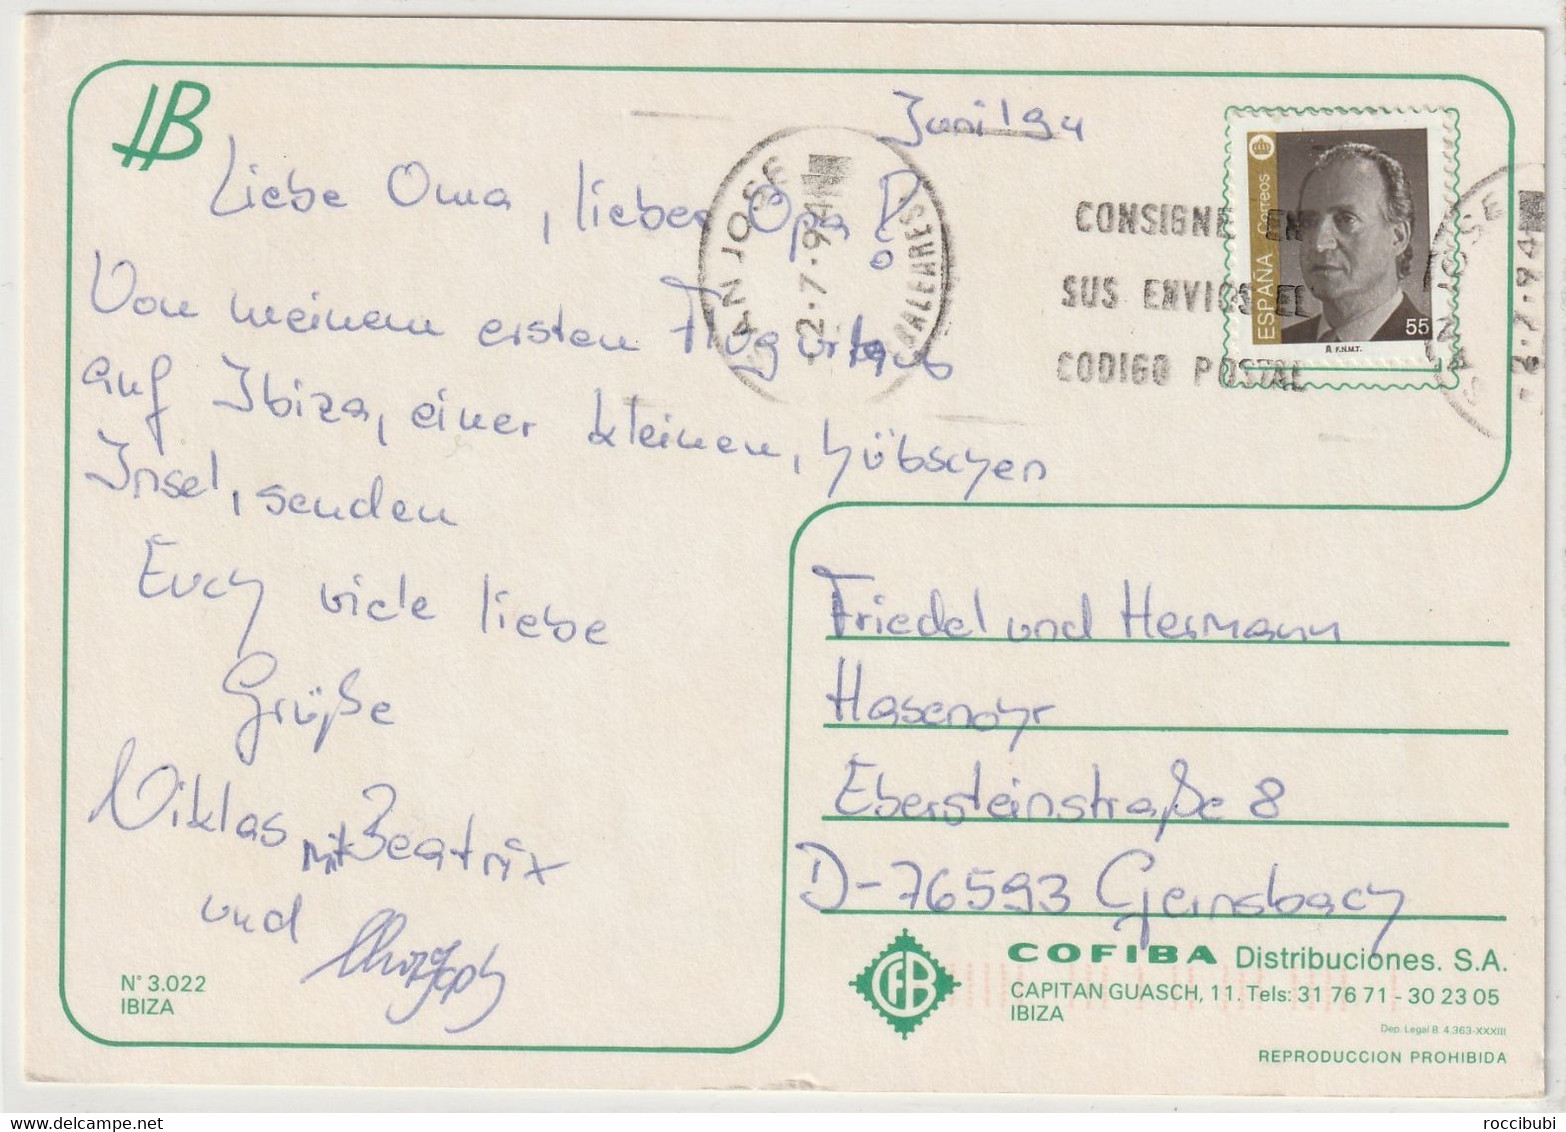 HB
Juni '94
Liebe Oma, lieber Opa!
Von meinem ersten Flugurlaub
auf Ibiza, einer kleinen, hübschen
Insel, senden
Euch viele liebe
Grüße
Niklas mit Beatrix
und Christoph
SAN JOSE
2.7.94
BALEARES
CONSIGNE EN
SUS ENVIOS EL
CODIGO POSTAL
ESPAÑA Correos
55
F.N.M.T.
SAN JOSE
2.7.94
Friedel und Hermann
Hasenohr
Ebersteinstraße 8
D-76593 Gernsbach
N° 3.022
IBIZA
CFB
COFIBA Distribuciones. S.A.
CAPITAN GUASCH, 11. Tels: 31 76 71 - 30 23 05
IBIZA
Dep. Legal B. 4.363-XXXIII
REPRODUCCION PROHIBIDA
roccibubi